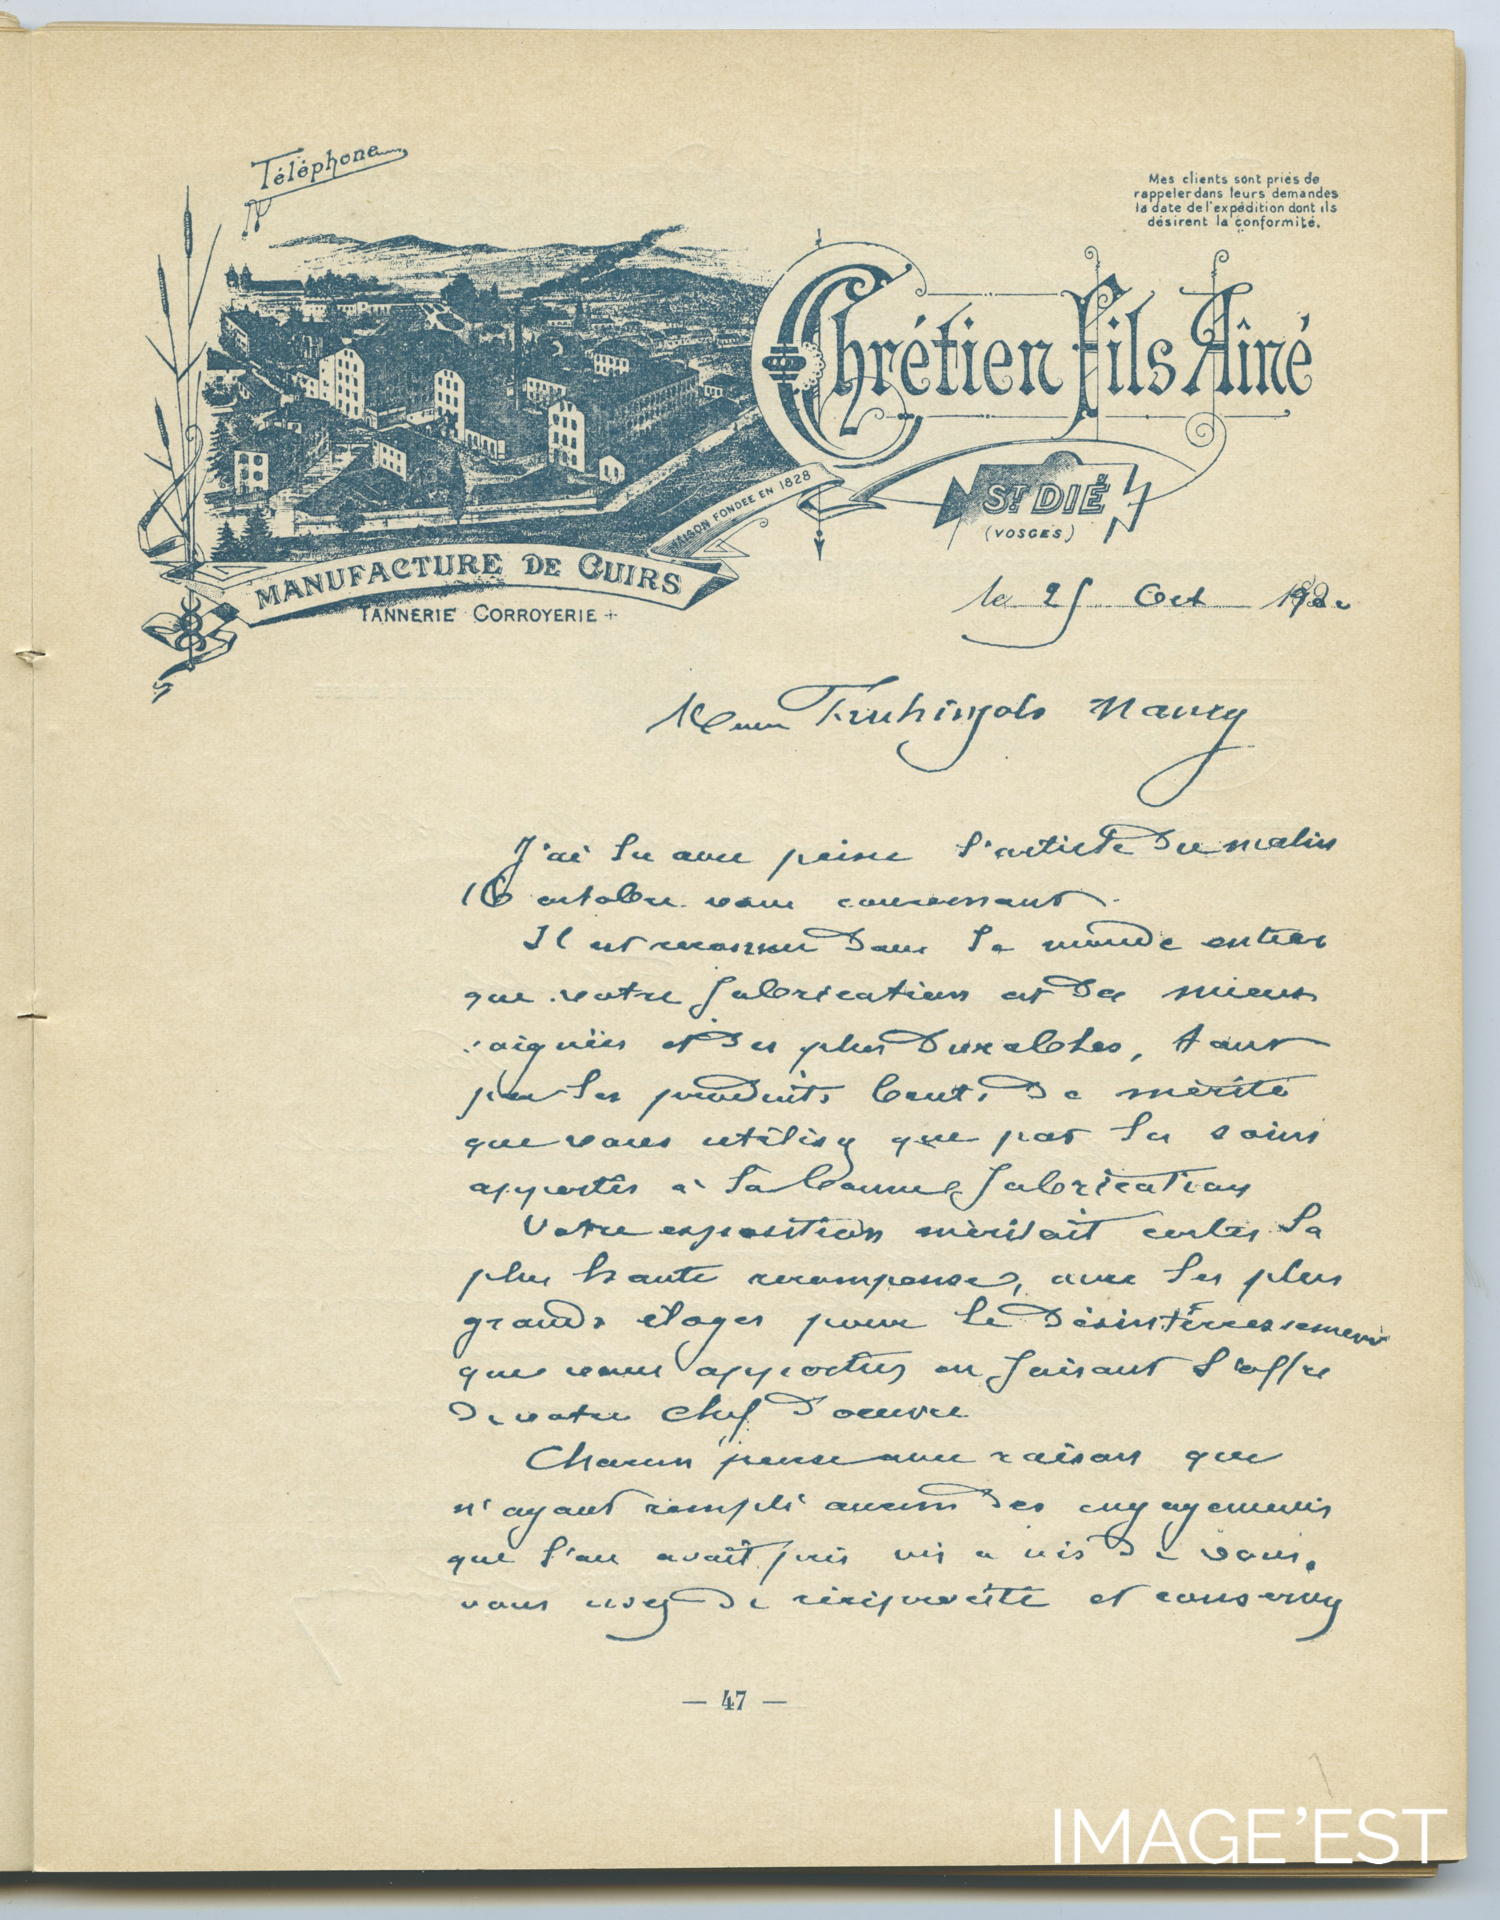 Téléphone
Mes clients sont priés de
rappeler dans leurs demandes
la date de l'expédition dont ils
désirent la conformité.
Chrétien Fils Aîné
MAISON FONDÉE EN 1828
ST DIÉ
(VOSGES)
MANUFACTURE DE CUIRS
TANNERIE CORROYERIE
le 25 Oct
Fruhinsholz Nancy
J'ai lu avec peine l'article du matin
16 octobre vous concernant.
Il est reconnu dans le monde entier
que votre fabrication est des mieux
soignées et des plus durables, tant
par les produits bruts de mérite
que vous utilisez que par les soins
apportés à la bonne fabrication
Votre exposition méritait certes la
plus haute recompense, avec les plus
grands éloges pour le désintéressement
que vous apportez en faisant l'offre
de votre chef d'oeuvre
Chacun pense avec raison que
n'ayant rempli aucun des engagements
que l'on avait pris vis a vis de vous,
vous usez de réciprocité et conservez
— 47 —
IMAGE'EST